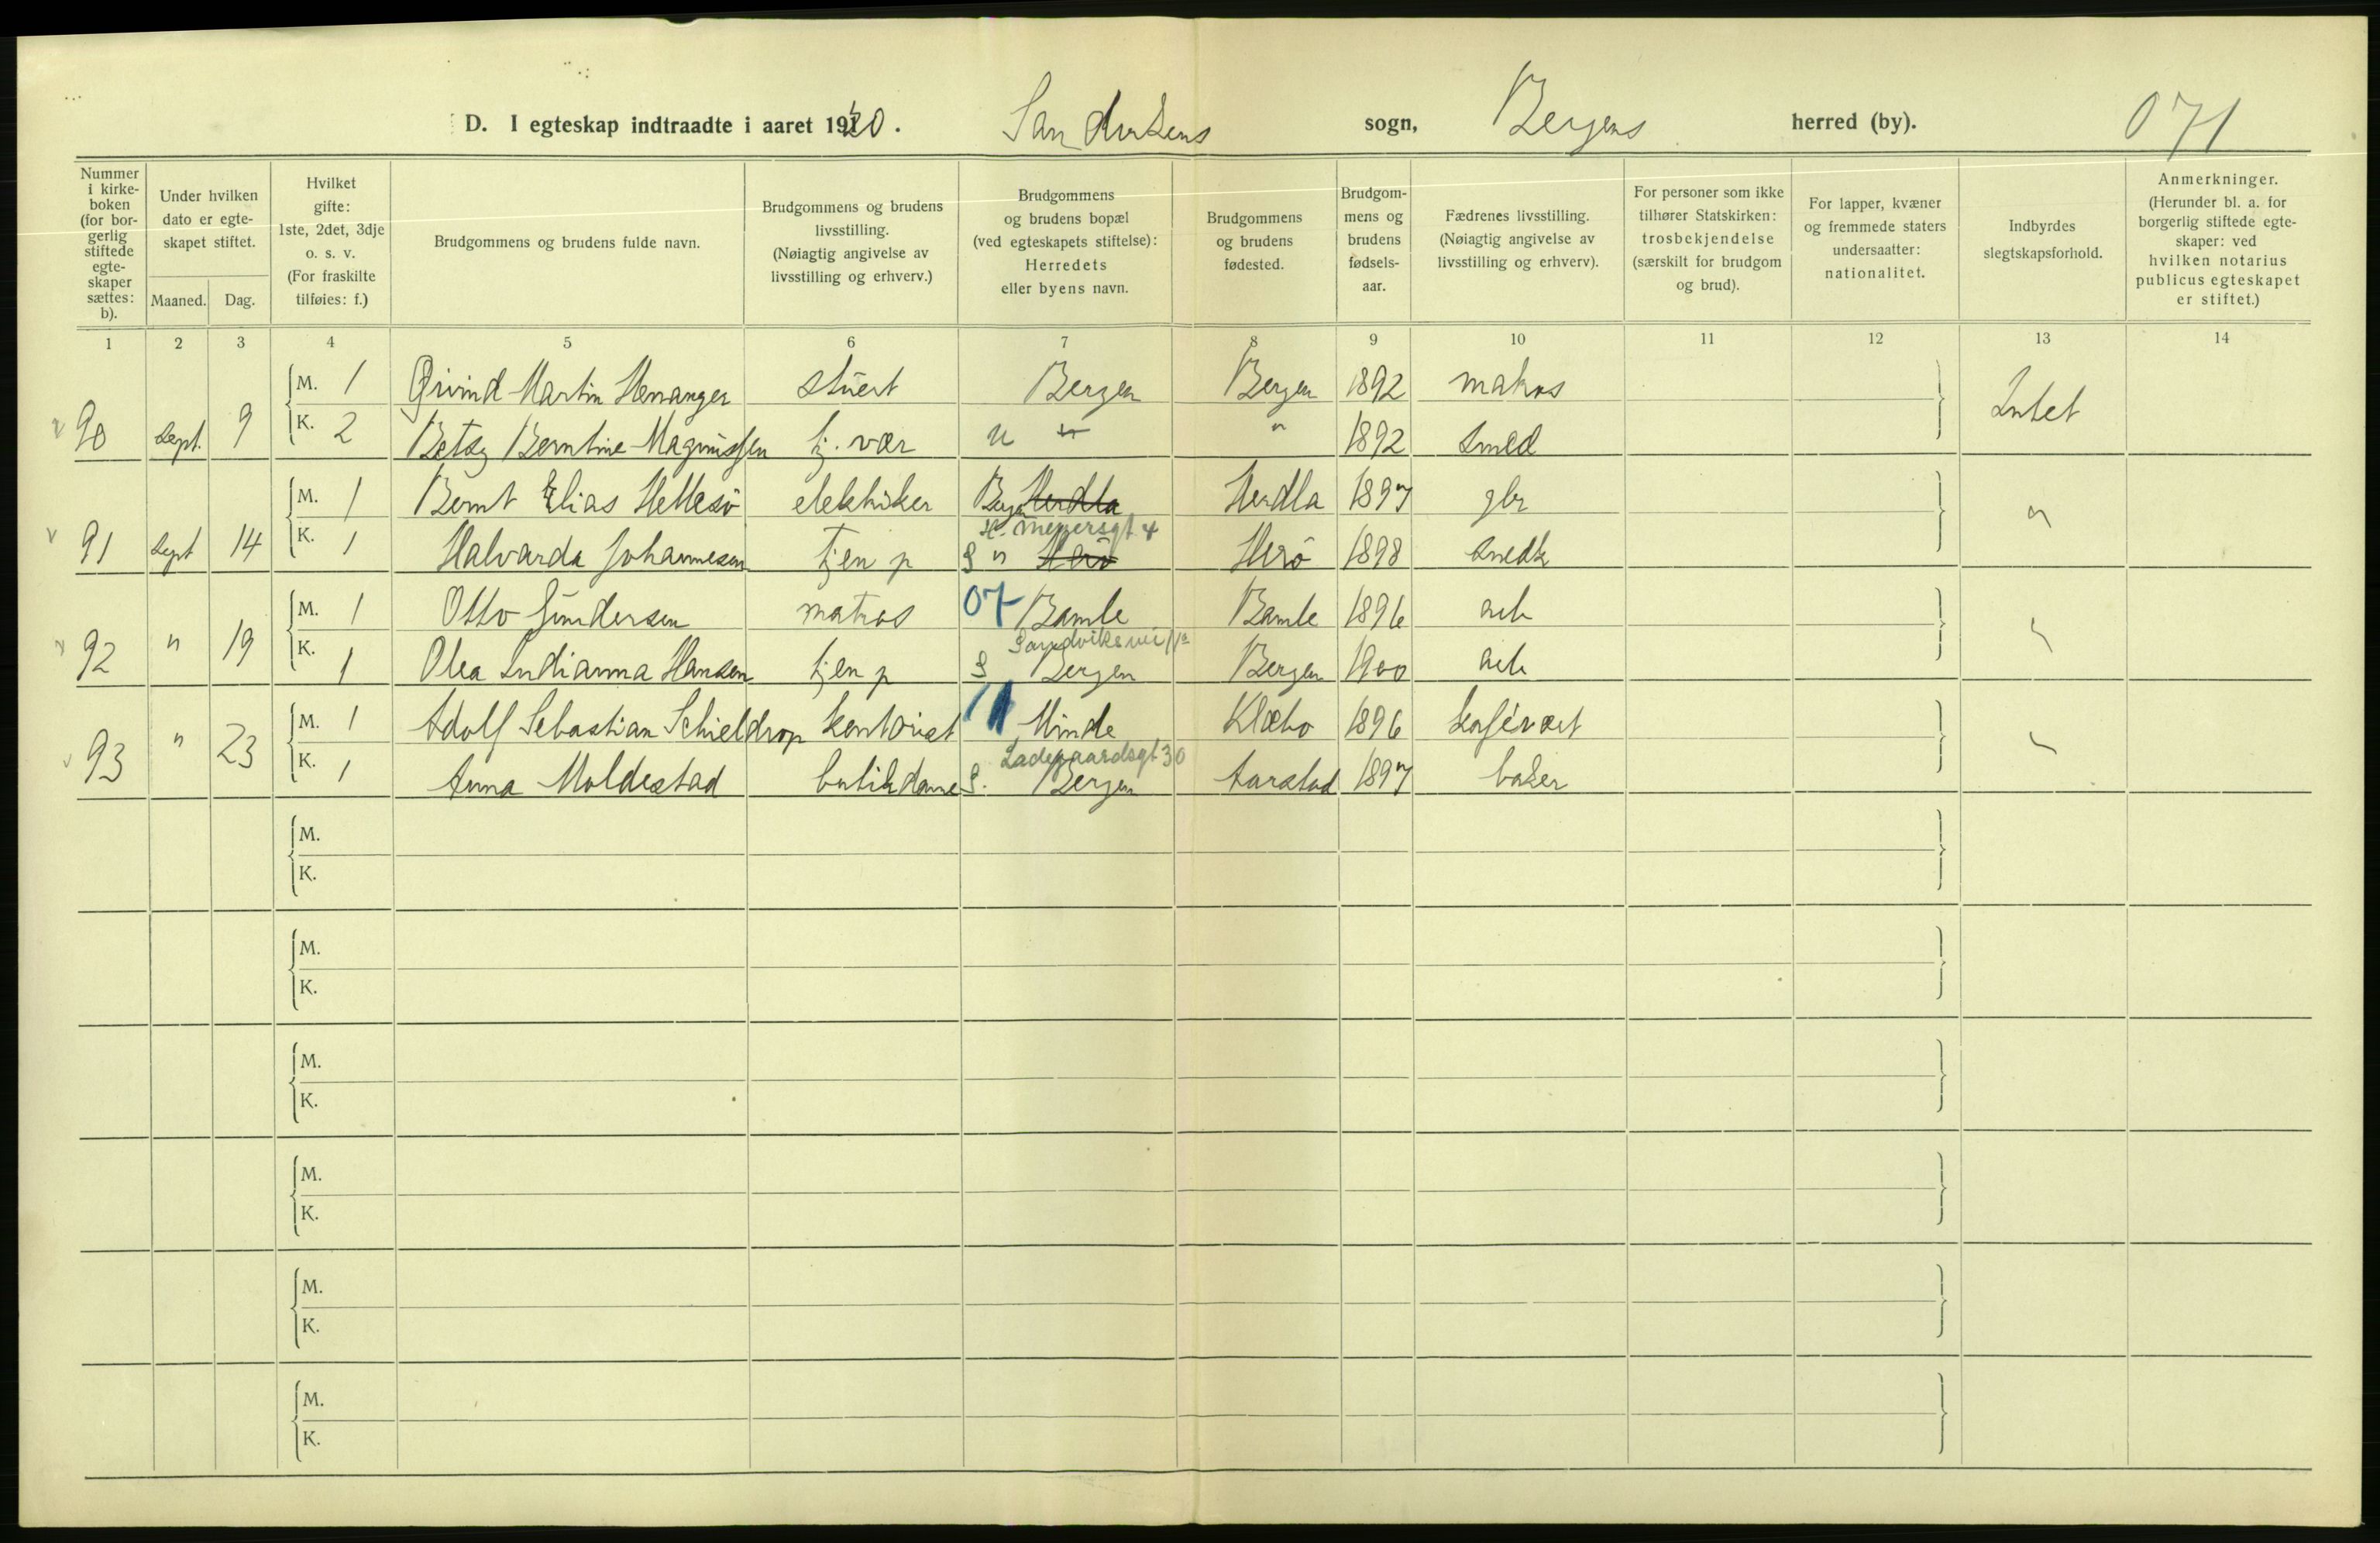 D. I egteskap indtraadte i aaret 1920. Sandvikens sogn, Bergens herred (by). 071
Nummer i kirke-boken (for bor-gerlig stiftede egte-skaper sættes: b).
Under hvilken dato er egte-skapet stiftet.
Maaned. Dag.
Hvilket gifte: 1ste, 2det, 3dje o. s. v. (For fraskilte tilføies: f.)
Brudgommens og brudens fulde navn.
Brudgommens og brudens livsstilling. (Nøiagtig angivelse av livsstilling og erhverv.)
Brudgommens og brudens bopæl (ved egteskapets stiftelse): Herredets eller byens navn.
Brudgommens og brudens fødested.
Brudgom-mens og brudens fødsels-aar.
Fædrenes livsstilling. (Nøiagtig angivelse av livsstilling og erhverv).
For personer som ikke tilhører Statskirken: trosbekjendelse (særskilt for brudgom og brud).
For lapper, kvæner og fremmede staters undersaatter: nationalitet.
Indbyrdes slegtskapsforhold.
Anmerkninger. (Herunder bl. a. for borgerlig stiftede egte-skaper: ved hvilken notarius publicus egteskapet er stiftet.)
1 2 3 4 5 6 7 8 9 10 11 12 13 14
M. 1 Øivind Martin Henanger stuert Bergen Bergen 1892 matros
90 Sept. 9 Intet
K. 2 Betsy Berntine Magnussen tj. vær " " 1892 smed
M. 1 Bernt Elias Hellesö elektriker Bergen Herdla Herdla 1897 gbr
H. Meyersgt 4
91 Sept 14 "
K. 1 Halvarda Johannesen tjen p S " Herö Herö 1898 snedk
M. 1 Otto Gundersen matros 07 Bamle Bamle 1896 arb
Sandviksvei 11a
92 " 19 "
K. 1 Olea Indianna Hansen tjen p S Bergen Bergen 1900 arb
M. 1 Adolf Sebastian Schieldrop kontorist Minde Klæbo 1896 kafévært
Ladegaardsgt 30
93 " 23 "
K. 1 Anna Moldestad butikdame S. Bergen Aarstad 1897 baker
M.
K.
M.
K.
M.
K.
M.
K.
M.
K.
M.
K.